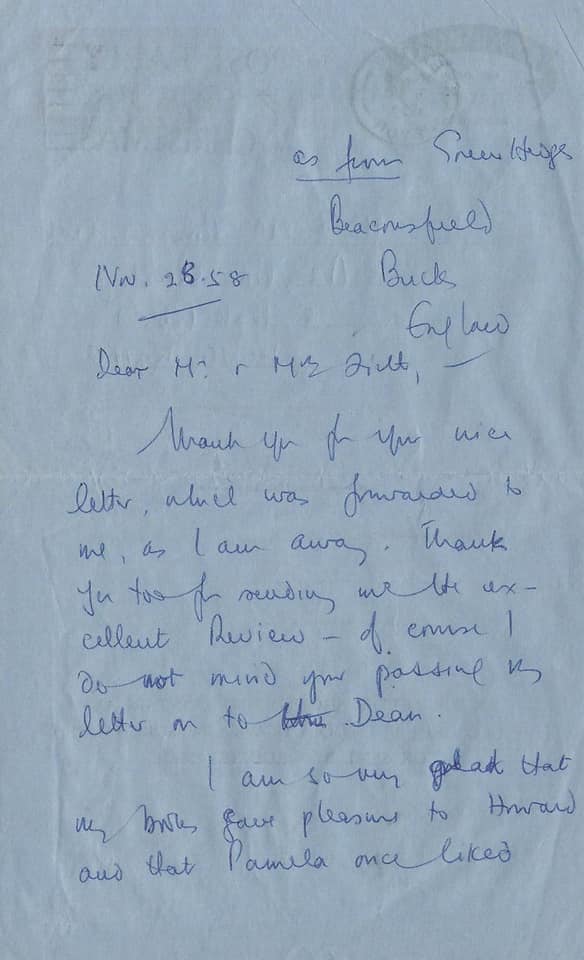 as from Green Hedges
Beaconsfield
Nov. 28.58 Bucks
England
Dear Mr & Mrs
Thank you for your nice
letter, which was forwarded to
me, as I am away. Thank
you too for sending me the ex-
cellent Review – of course I
do not mind your passing my
letter on to Dean.
I am so very glad that
my books gave pleasure to Howard
and that Pamela once liked